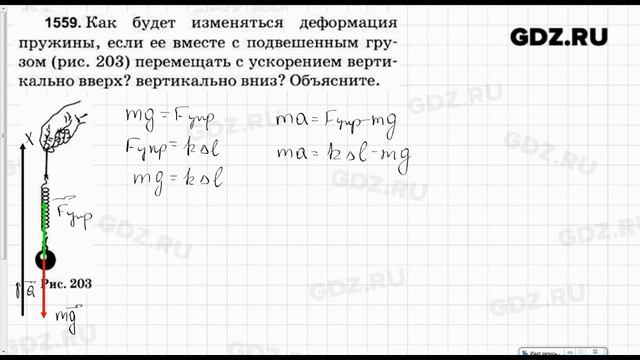 1559. Как будет изменяться деформация
пружины, если ее вместе с подвешенным гру-
зом (рис. 203) перемещать с ускорением верти-
кально вверх? вертикально вниз? Объясните.
GDZ.RU
mg = Fупр
Fупр = kΔl
mg = kΔl
ma = Fупр - mg
ma = kΔl - mg
X
Fупр
a
Рис. 203
mg
GDZ.RU
GDZ.RU
GDZ.RU
GDZ.RU
GDZ.RU